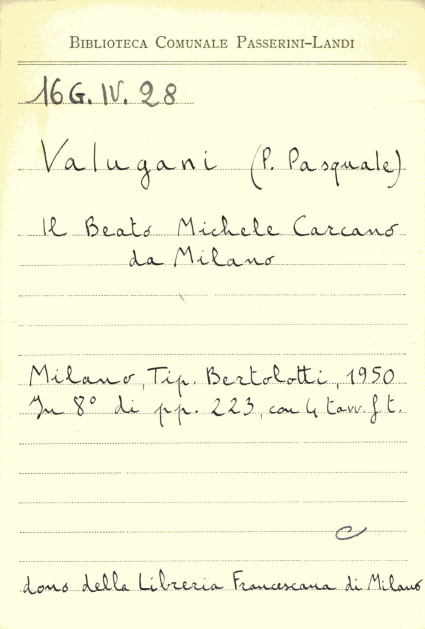 BIBLIOTECA COMUNALE PASSERINI-LANDI
16 G. IV. 28
Valugani (P. Pasquale)
Il Beato Michele Carcano
da Milano
Milano, Tip. Bertolotti, 1950
In 8° di pp. 223, con 4 tavv. f. t.
C
dono della Libreria Francescana di Milano